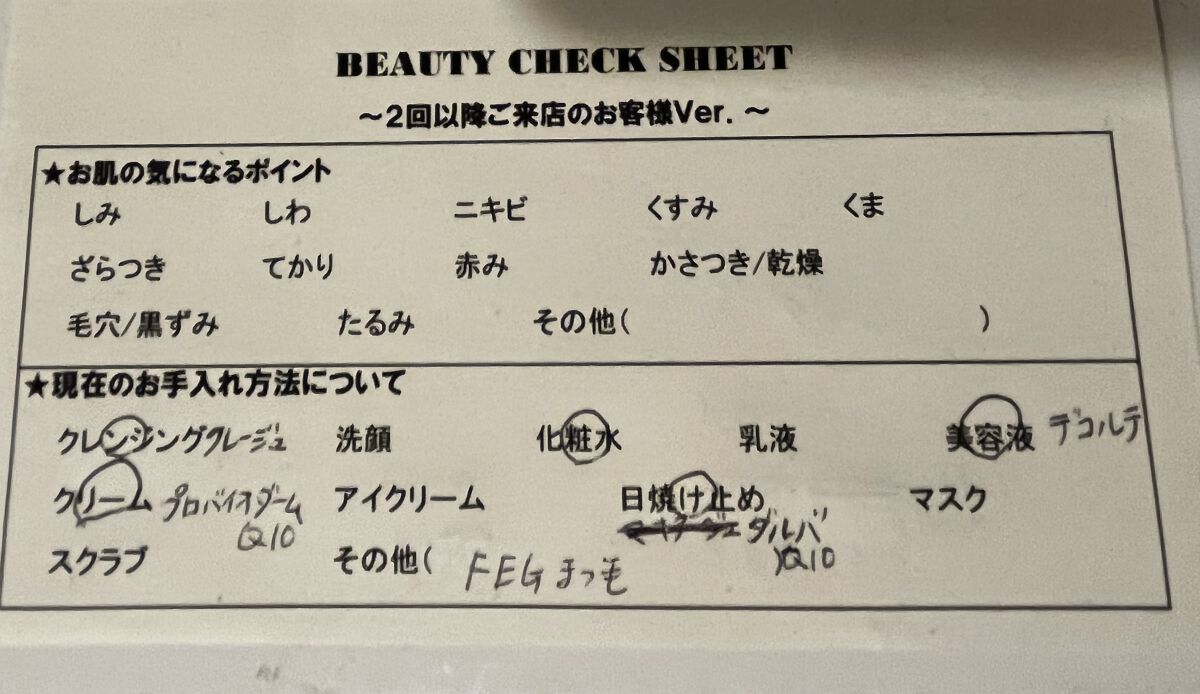 BEAUTY CHECK SHEET
～2回以降ご来店のお客様Ver. ～
★お肌の気になるポイント
しみ しわ ニキビ くすみ くま
ざらつき てかり 赤み かさつき/乾燥
毛穴/黒ずみ たるみ その他( )
★現在のお手入れ方法について
クレンジング クレージュ 洗顔 化粧水 乳液 美容液 デコルテ
クリーム プロバイオダーム アイクリーム 日焼け止め マスク
Q10 ダルバ
スクラブ その他( FEGまつ毛 )Q10